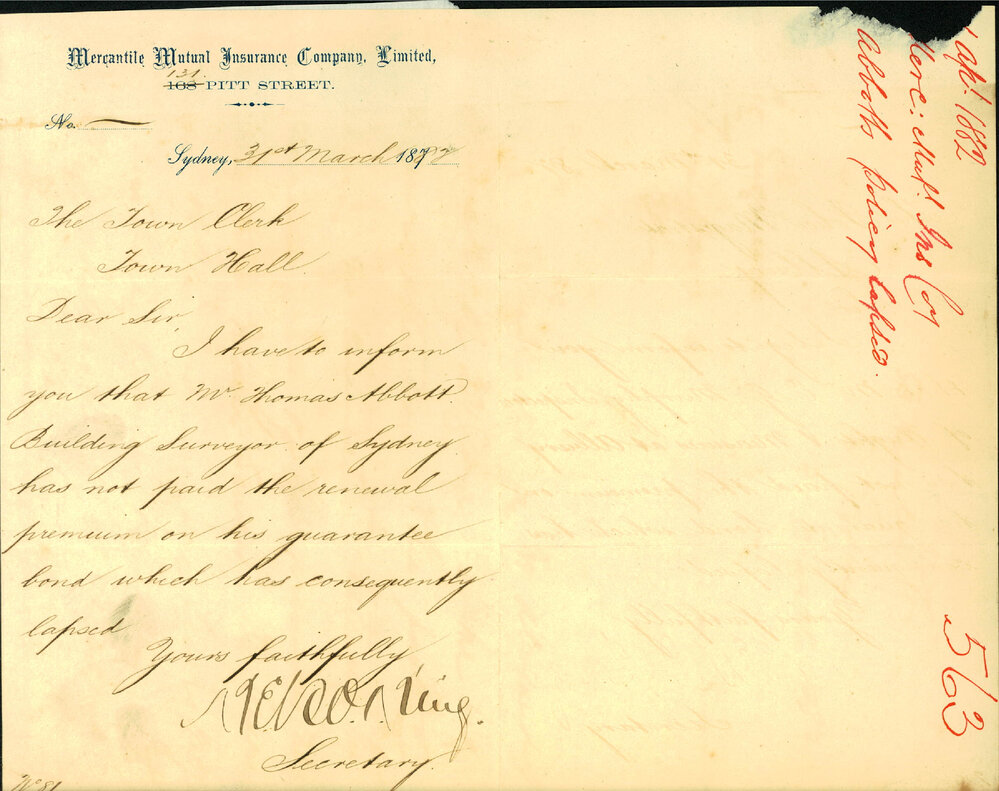 Mercantile Mutual Insurance Company, Limited,
131.
168 PITT STREET.
No.
Sydney, 31st March 1882
The Town Clerk
Town Hall
Dear Sir,
I have to inform
you that Mr Thomas Abbott
Building Surveyor of Sydney
has not paid the renewal
premium on his guarantee
bond which has consequently
lapsed
Yours faithfully
King.
Secretary.
1 Apl. 1882
Merc: Mutl. Ins Coy
Abbotts policy lapsed.
563